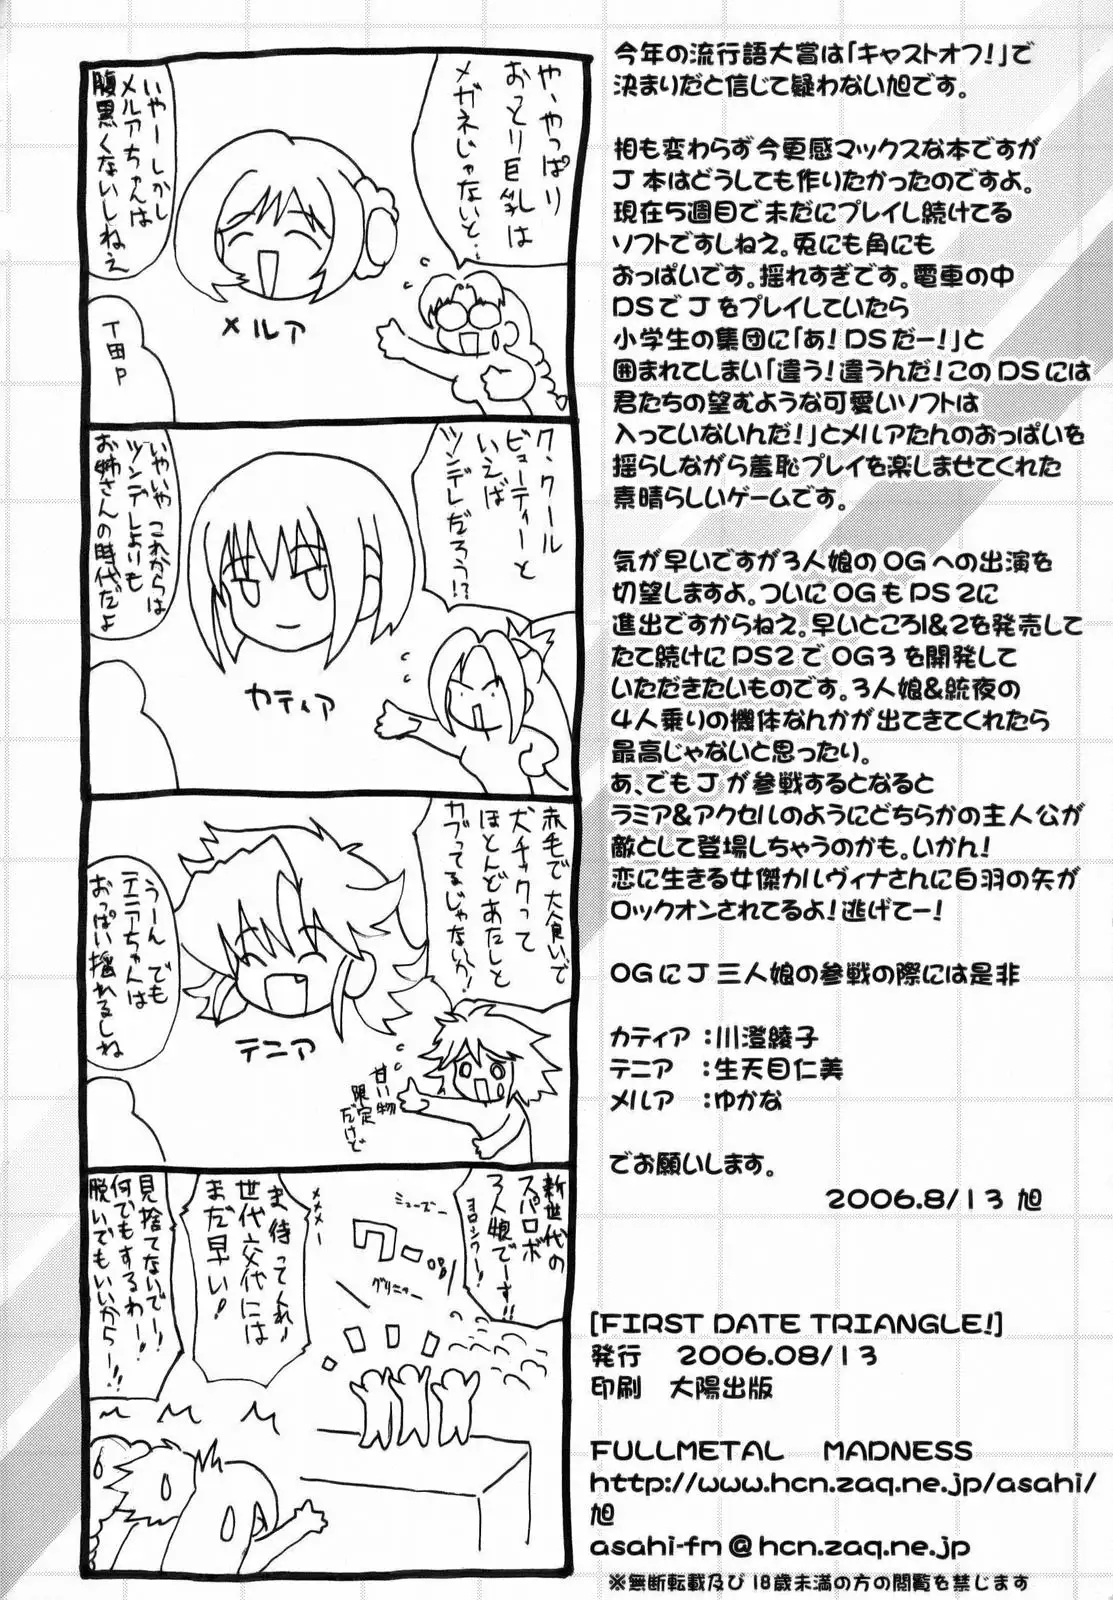 や、やっぱり
おっとり巨乳は
メガネじゃないと…
いやーしかし
メルアちゃんは
腹黒くないしねえ
メルア
T田P
ク、クール
ビューティーと
いえば
ツンデレだろう!?
いやいやこれからは
ツンデレよりも
お姉さんの時代だよ
カティア
赤毛で大食いで
犬チックって
ほとんどあたしと
カブってるじゃないか!
うーんでも
テニアちゃんは
おっぱい揺れるしね
テニア
甘い物
限定
だけど
新世代の
スパロボ
3人娘でーす!!
ヨロシクー!
ミューズー
グリニャー
メメメー
ま、待ってくれ!
世代交代には
まだ早い!
見捨てないでー!
何でもするわー!
脱いでもいいからー!!
今年の流行語大賞は「キャストオフ!」で
決まりだと信じて疑わない旭です。
相も変わらず今更感マックスな本ですが
J本はどうしても作りたかったのですよ。
現在5週目で未だにプレイし続けてる
ソフトですしねえ。兎にも角にも
おっぱいです。揺れすぎです。電車の中
DSでJをプレイしていたら
小学生の集団に「あ!DSだー!」と
囲まれてしまい「違う!違うんだ!このDSには
君たちの望むような可愛いソフトは
入っていないんだ!」とメルアたんのおっぱいを
揺らしながら羞恥プレイを楽しませてくれた
素晴らしいゲームです。
気が早いですが3人娘のOGへの出演を
切望しますよ。ついにOGもPS2に
進出ですからねえ。早いところ1&2を発売して
たて続けにPS2でOG3を開発して
いただきたいものです。3人娘&統夜の
4人乗りの機体なんかが出てきてくれたら
最高じゃないと思ったり。
あ、でもJが参戦するとなると
ラミア&アクセルのようにどちらかの主人公が
敵として登場しちゃうのかも。いかん!
恋に生きる女傑カルヴィナさんに白羽の矢が
ロックオンされてるよ!逃げてー!
OGにJ三人娘の参戦の際には是非
カティア:川澄綾子
テニア :生天目仁美
メルア :ゆかな
でお願いします。
2006.8/13 旭
[FIRST DATE TRIANGLE!]
発行 2006.08/13
印刷 大陽出版
FULLMETAL MADNESS
http://www.hcn.zaq.ne.jp/asahi/
旭
asahi-fm@hcn.zaq.ne.jp
※無断転載及び18歳未満の方の閲覧を禁じます